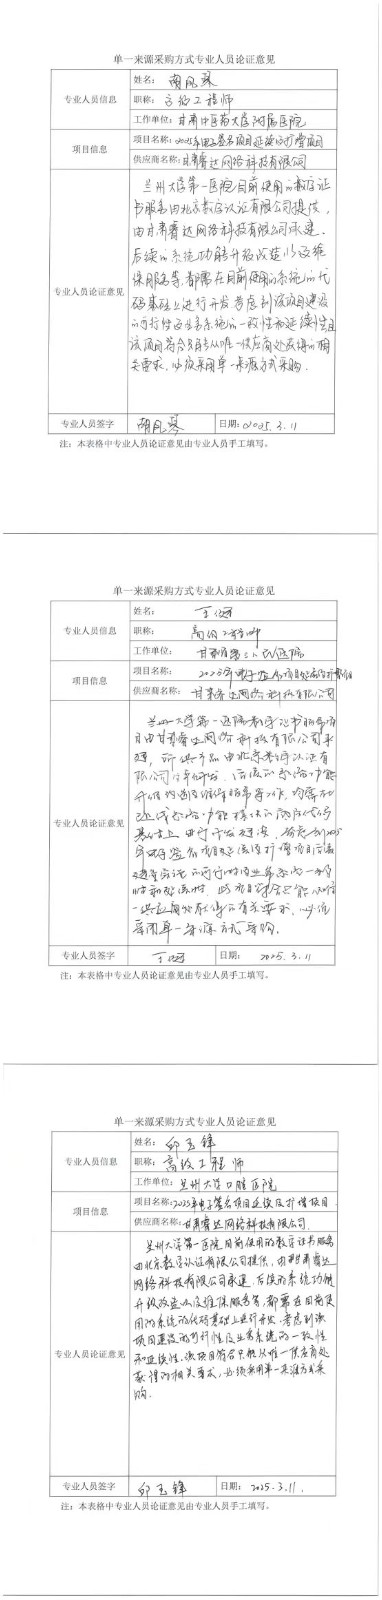 单一来源采购方式专业人员论证意见
专业人员信息
姓名：胡凤琴
职称：高级工程师
工作单位：甘肃中医药大学附属医院
项目信息
项目名称：2025年电子签名项目延续及扩增项目
供应商名称：甘肃睿达网络科技有限公司
专业人员论证意见
兰州大学第一医院目前使用的数字证
书服务由北京数字认证有限公司提供，
由甘肃睿达网络科技有限公司承建。
后续的系统功能升级改造以及维
保服务等，都需在目前使用的系统的代
码基础上进行开发考虑到该项目建设
的可行性及业务系统的一致性和延续性且
该项目符合只能从唯一供应商处获得的相
关要求，必须采用单一来源方式采购。
专业人员签字
胡凤琴
日期：2025.3.11
注：本表格中专业人员论证意见由专业人员手工填写。
单一来源采购方式专业人员论证意见
专业人员信息
姓名：
职称：高级工程师
工作单位：甘肃省第二人民医院
项目信息
项目名称：2025年电子签名项目延续及扩增项目
供应商名称：甘肃睿达网络科技有限公司
专业人员论证意见
兰州大学第一医院数字证书服务项
目由甘肃睿达网络科技有限公司承
建，所供产品由北京数字认证有
限公司
基础上进行开发建设，
供应商处获得的有关要求，必须
采用单一来源方式采购。
专业人员签字
日期：2025.3.11
注：本表格中专业人员论证意见由专业人员手工填写。
单一来源采购方式专业人员论证意见
专业人员信息
姓名：邱玉锋
职称：高级工程师
工作单位：兰州大学口腔医院
项目信息
项目名称：2025年电子签名项目延续及扩增项目
供应商名称：甘肃睿达网络科技有限公司
专业人员论证意见
兰州大学第一医院目前使用的数字证书服务
由北京数字认证有限公司提供，由甘肃睿达
网络科技有限公司承建，后续的系统功能
升级改造以及维保服务等，都需在目前使
用的系统的代码基础上进行开发，考虑到该
项目建设的可行性及业务系统的一致性
和延续性，该项目符合只能从唯一供应商处
获得的相关要求，必须采用单一来源方式采
购。
专业人员签字
邱玉锋
日期：2025.3.11.
注：本表格中专业人员论证意见由专业人员手工填写。